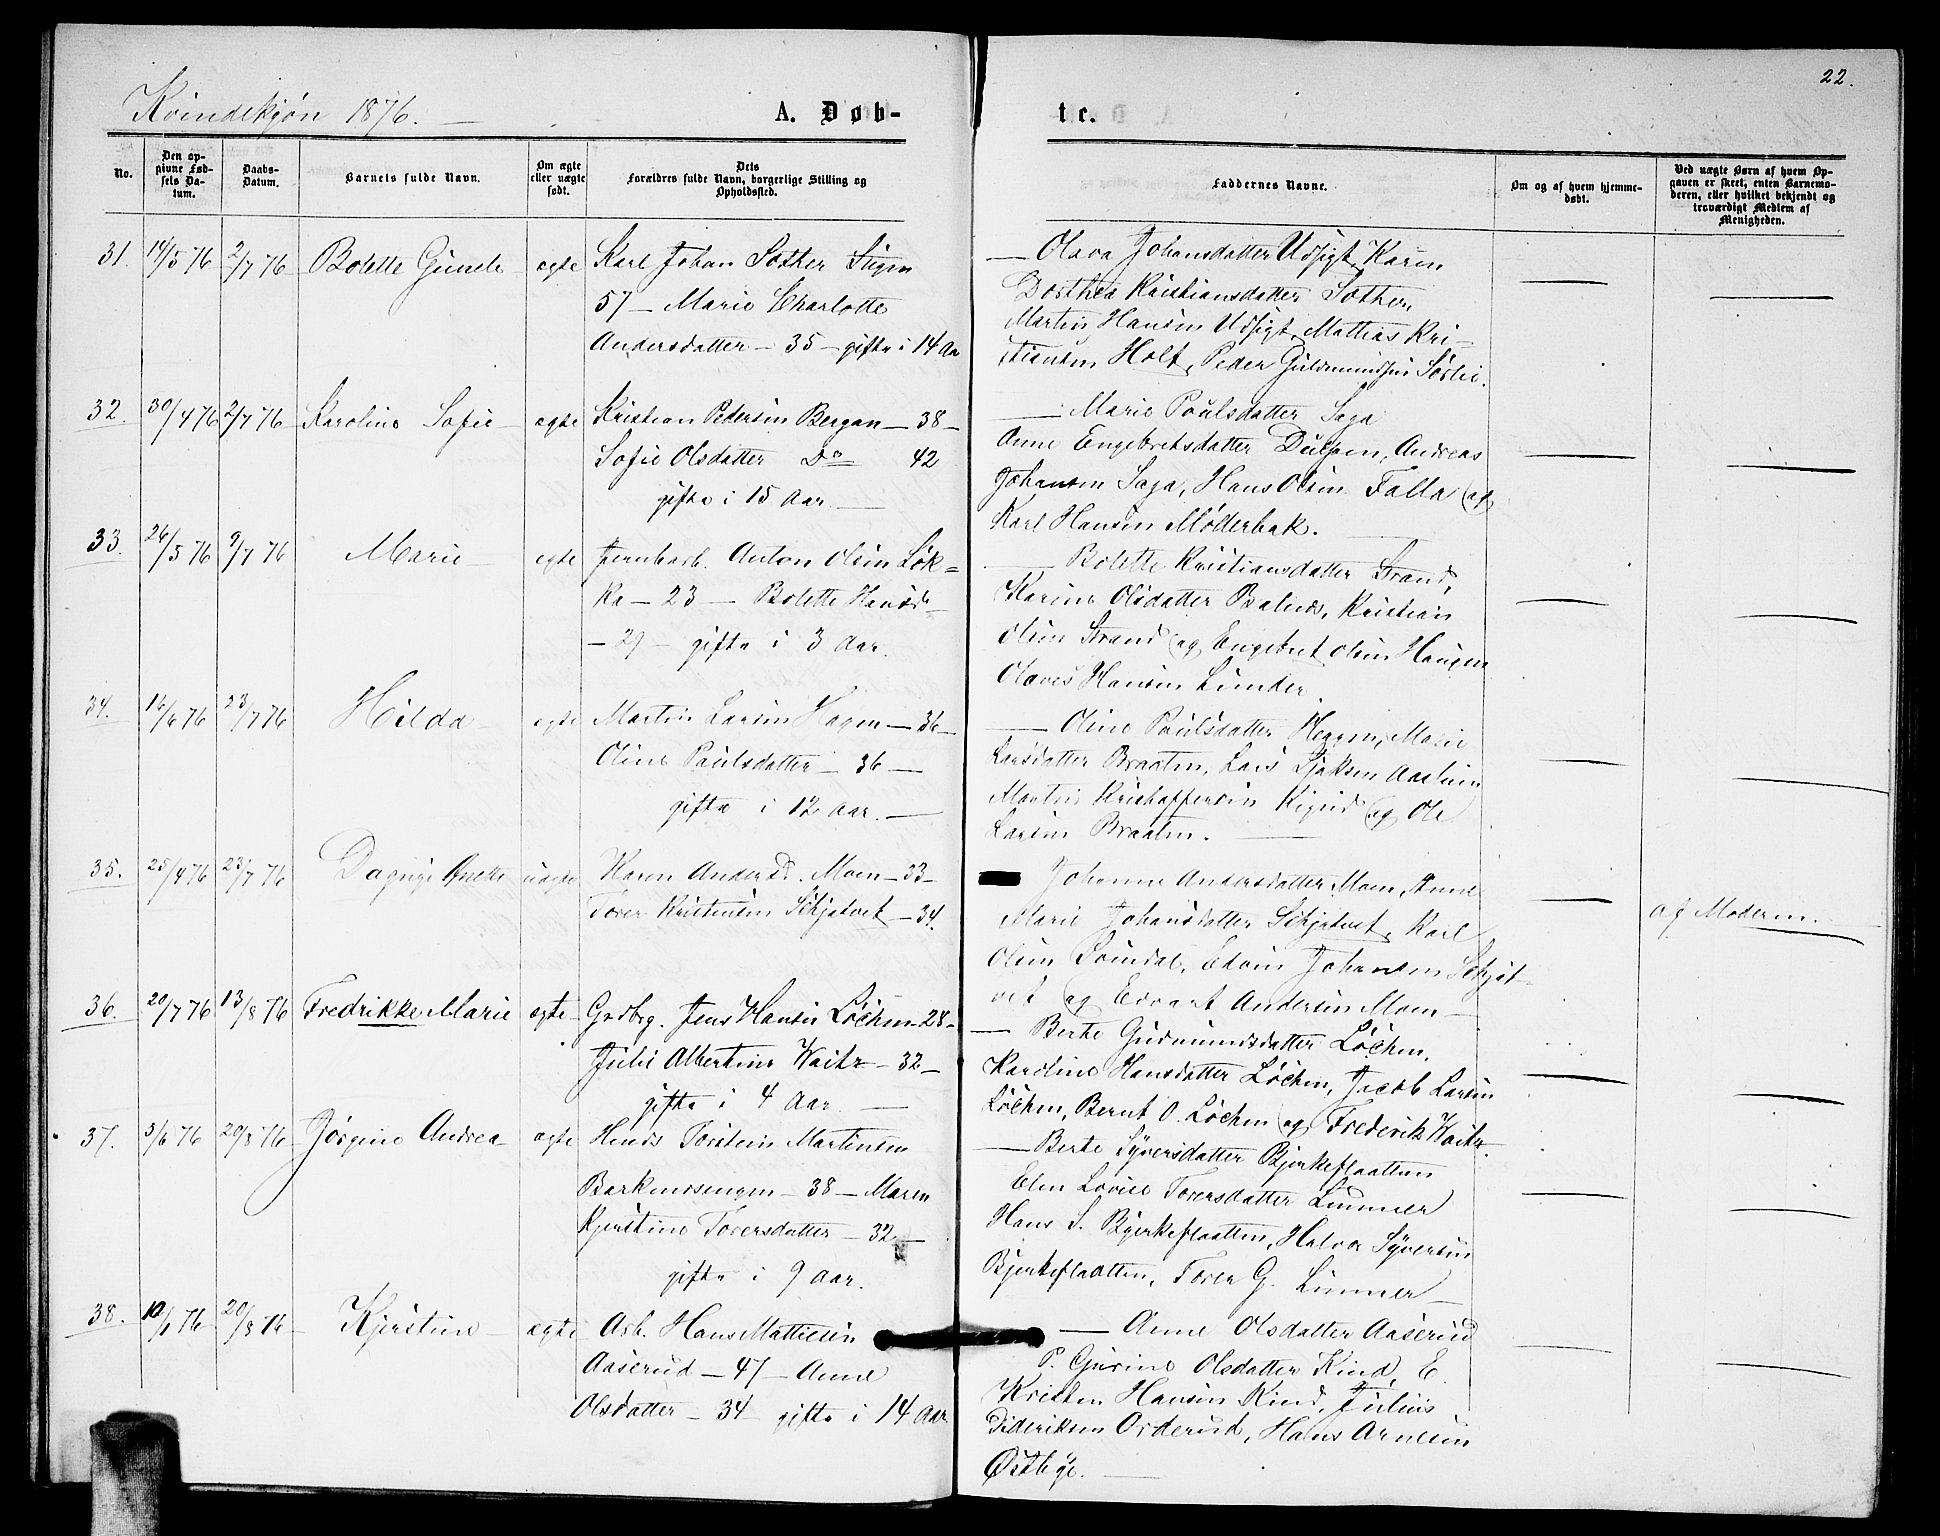 22.
Kvindekjön 1876.
A. Døb-
te.
No.
Den op-
givne Fød-
sels Da-
tum.
Daabs-
Datum.
Barnets fulde Navn.
Om ægte
eller uægte
født.
Dets
Forældres fulde Navn, borgerlige Stilling og
Opholdssted.
Faddernes Navne.
Om og af hvem hjemme-
døbt.
Ved uægte Børn af hvem Op-
gaven er skeet, enten Barnemo-
deren, eller hvilket bekjendt og
troværdigt Medlem af
Menigheden.
31. 14/5 76 2/7 76 Bolette Gunele ægte Karl Johan Sother
57 — Marie Charlotte
Andersdatter — 35 — gifte i 14 Aar
— Olava Johansdatter Udsigt, Karen
Dorthea Kristiansdatter Sother,
Martin Hansen Udsigt, Mathias Kri-
stiansen Holt, Peder Guldmundsen
32. 30/4 76 2/7 76 Karoline Sofie ægte Kristian Pedersen Bergan — 38 —
Sofie Olsdatter Do 42
gifte i 15 Aar. —
— Marie Poulsdatter Saga
Anne Engebretsdatter Dulpen, Andreas
Johansen Saga, Hans Olsen Falla og
Karl Hansen Mölderbak.
33. 26/5 76 9/7 76 Marie ægte Jernbarb. Anton Olsen Løk=
ka — 23 — Bolette Hansd.
— 29 — gifte i 3 Aar.
— Bolette Kristiansdatter Strand,
Karine Olsdatter Kristian
Olsen Strand og Engebret Olsen Haugen
Olaves Hansen Lunder.
34. 16/6 76 23/7 76 Hilda ægte Martin Larsen Hagen — 36 —
Oline Paulsdatter — 36 —
gifte i 12 Aar. —
— Oline Paulsdatter Heggen, Marie
Larsdatter Braaten, Lars
Martin Kristoffersen og Ole
Larsen Braaten.
35. 25/4 76 23/7 76 Dagny Anette uægte Karen Andersd. Moen — 33 —
Torer Kristensen Schjatvet — 34.
Johanne Andersdatter Moen, Anne
Marie Johansdatter Schjatvet, Karl
Olsen Edvin Johansen Schjat-
vet og Edvart Andersen Moen —
af Moderen.
36. 20/7 76 13/8 76 Fredrikke Marie ægte Grdbrg. Jens Hansen Löchen — 28 —
Julie Albertine Waitz — 32 —
gifte i 4 Aar. —
— Berte Gudmundsdatter Löchen,
Karoline Hansdatter Löchen, Jacob Larsen
Löchen, Bernt O. Löchen og Frederik Waitz.
37. 3/6 76 20/8 76 Jörgine Andrea ægte Hmds Torstein Martinsen
Barkenæsengen — 38 — Maren
Kjerstine Torersdatter — 32 —
gifte i 9 Aar.
— Berte Syversdatter Bjerkeflaatten
Elen Lovise Torersdatter Limmer
Hans S. Bjerkeflaatten, Halvor Syversen
Bjerkeflaatten, Torer G. Limmer —
38. 20/8 76 Kjerstine ægte Arb. Hans Mattiesen
Aaserud — 47 — Anne
Olsdatter — 34 gifte i 14 Aar
— Anne Olsdatter Aaserud
P. Gurine Olsdatter Kind, E.
Kristen Hansen Kind, Julius
Dideriksen Orderud, Hans Arnesen
Østbye. —